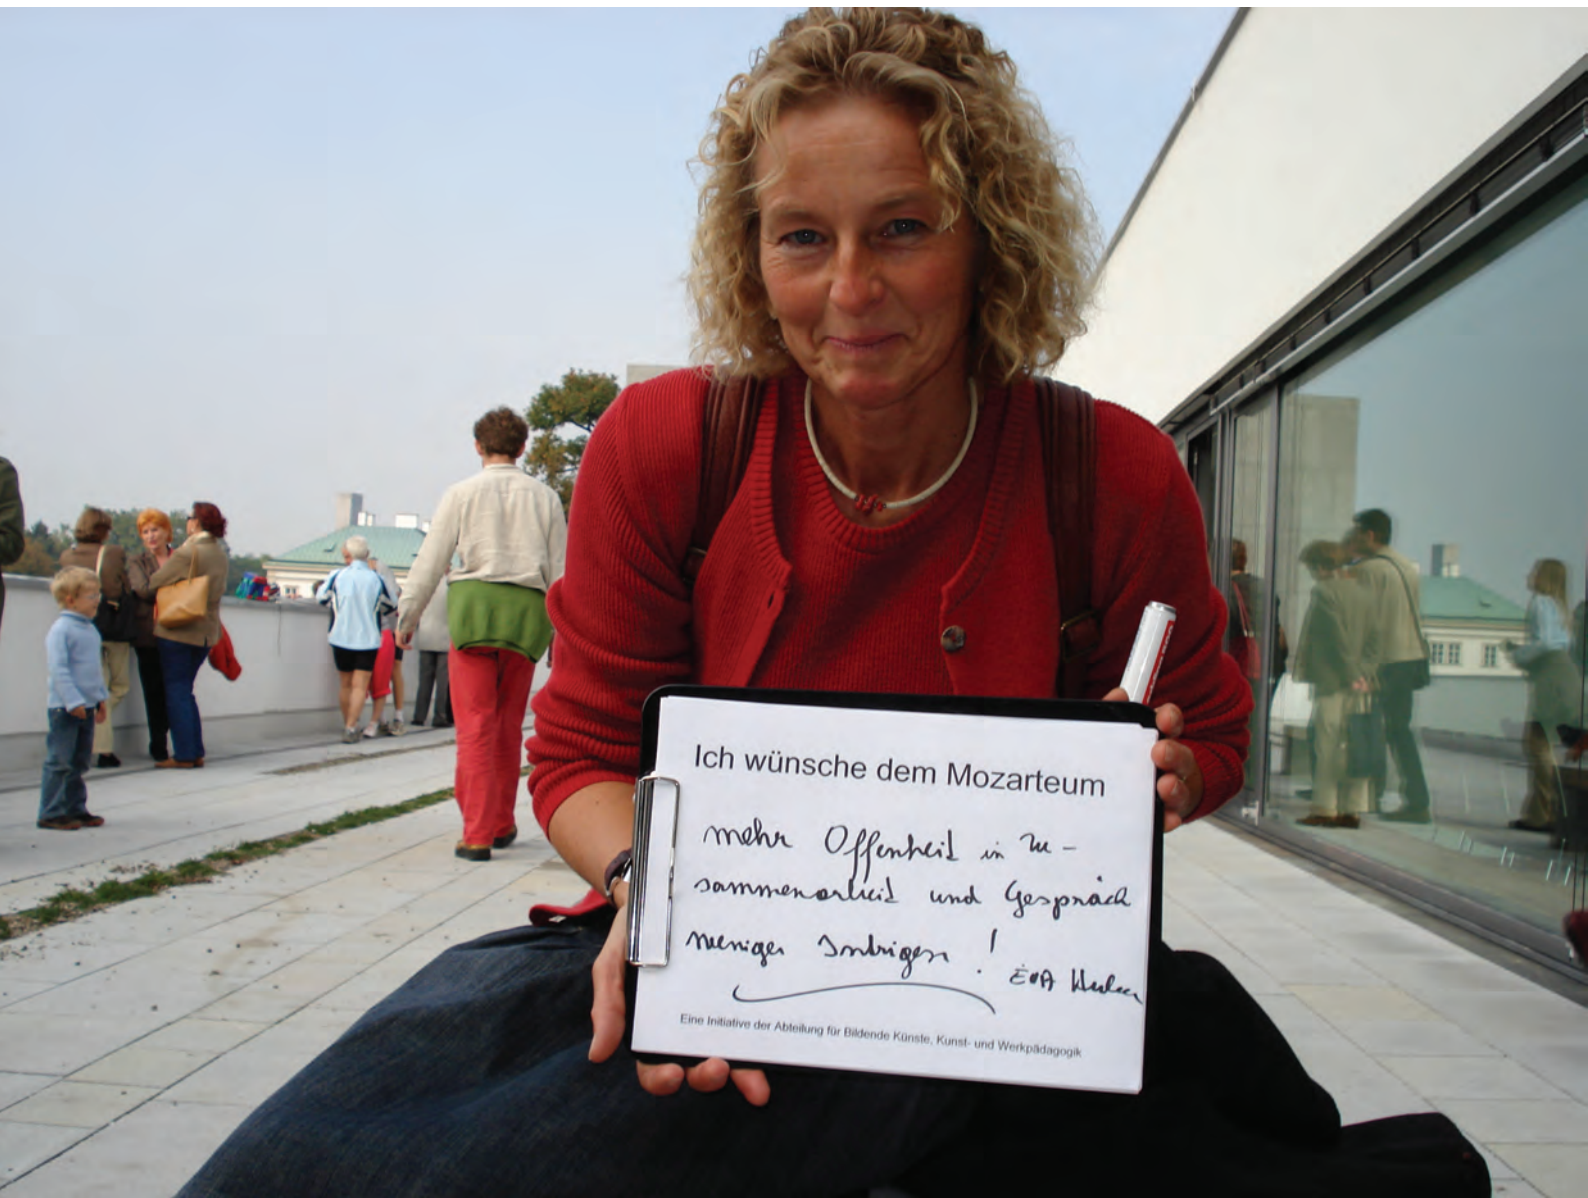 Ich wünsche dem Mozarteum
mehr Offenheit in Zu-
sammenarbeit und Gespräch
weniger Intrigen !
EVA
Eine Initiative der Abteilung für Bildende Künste, Kunst- und Werkpädagogik